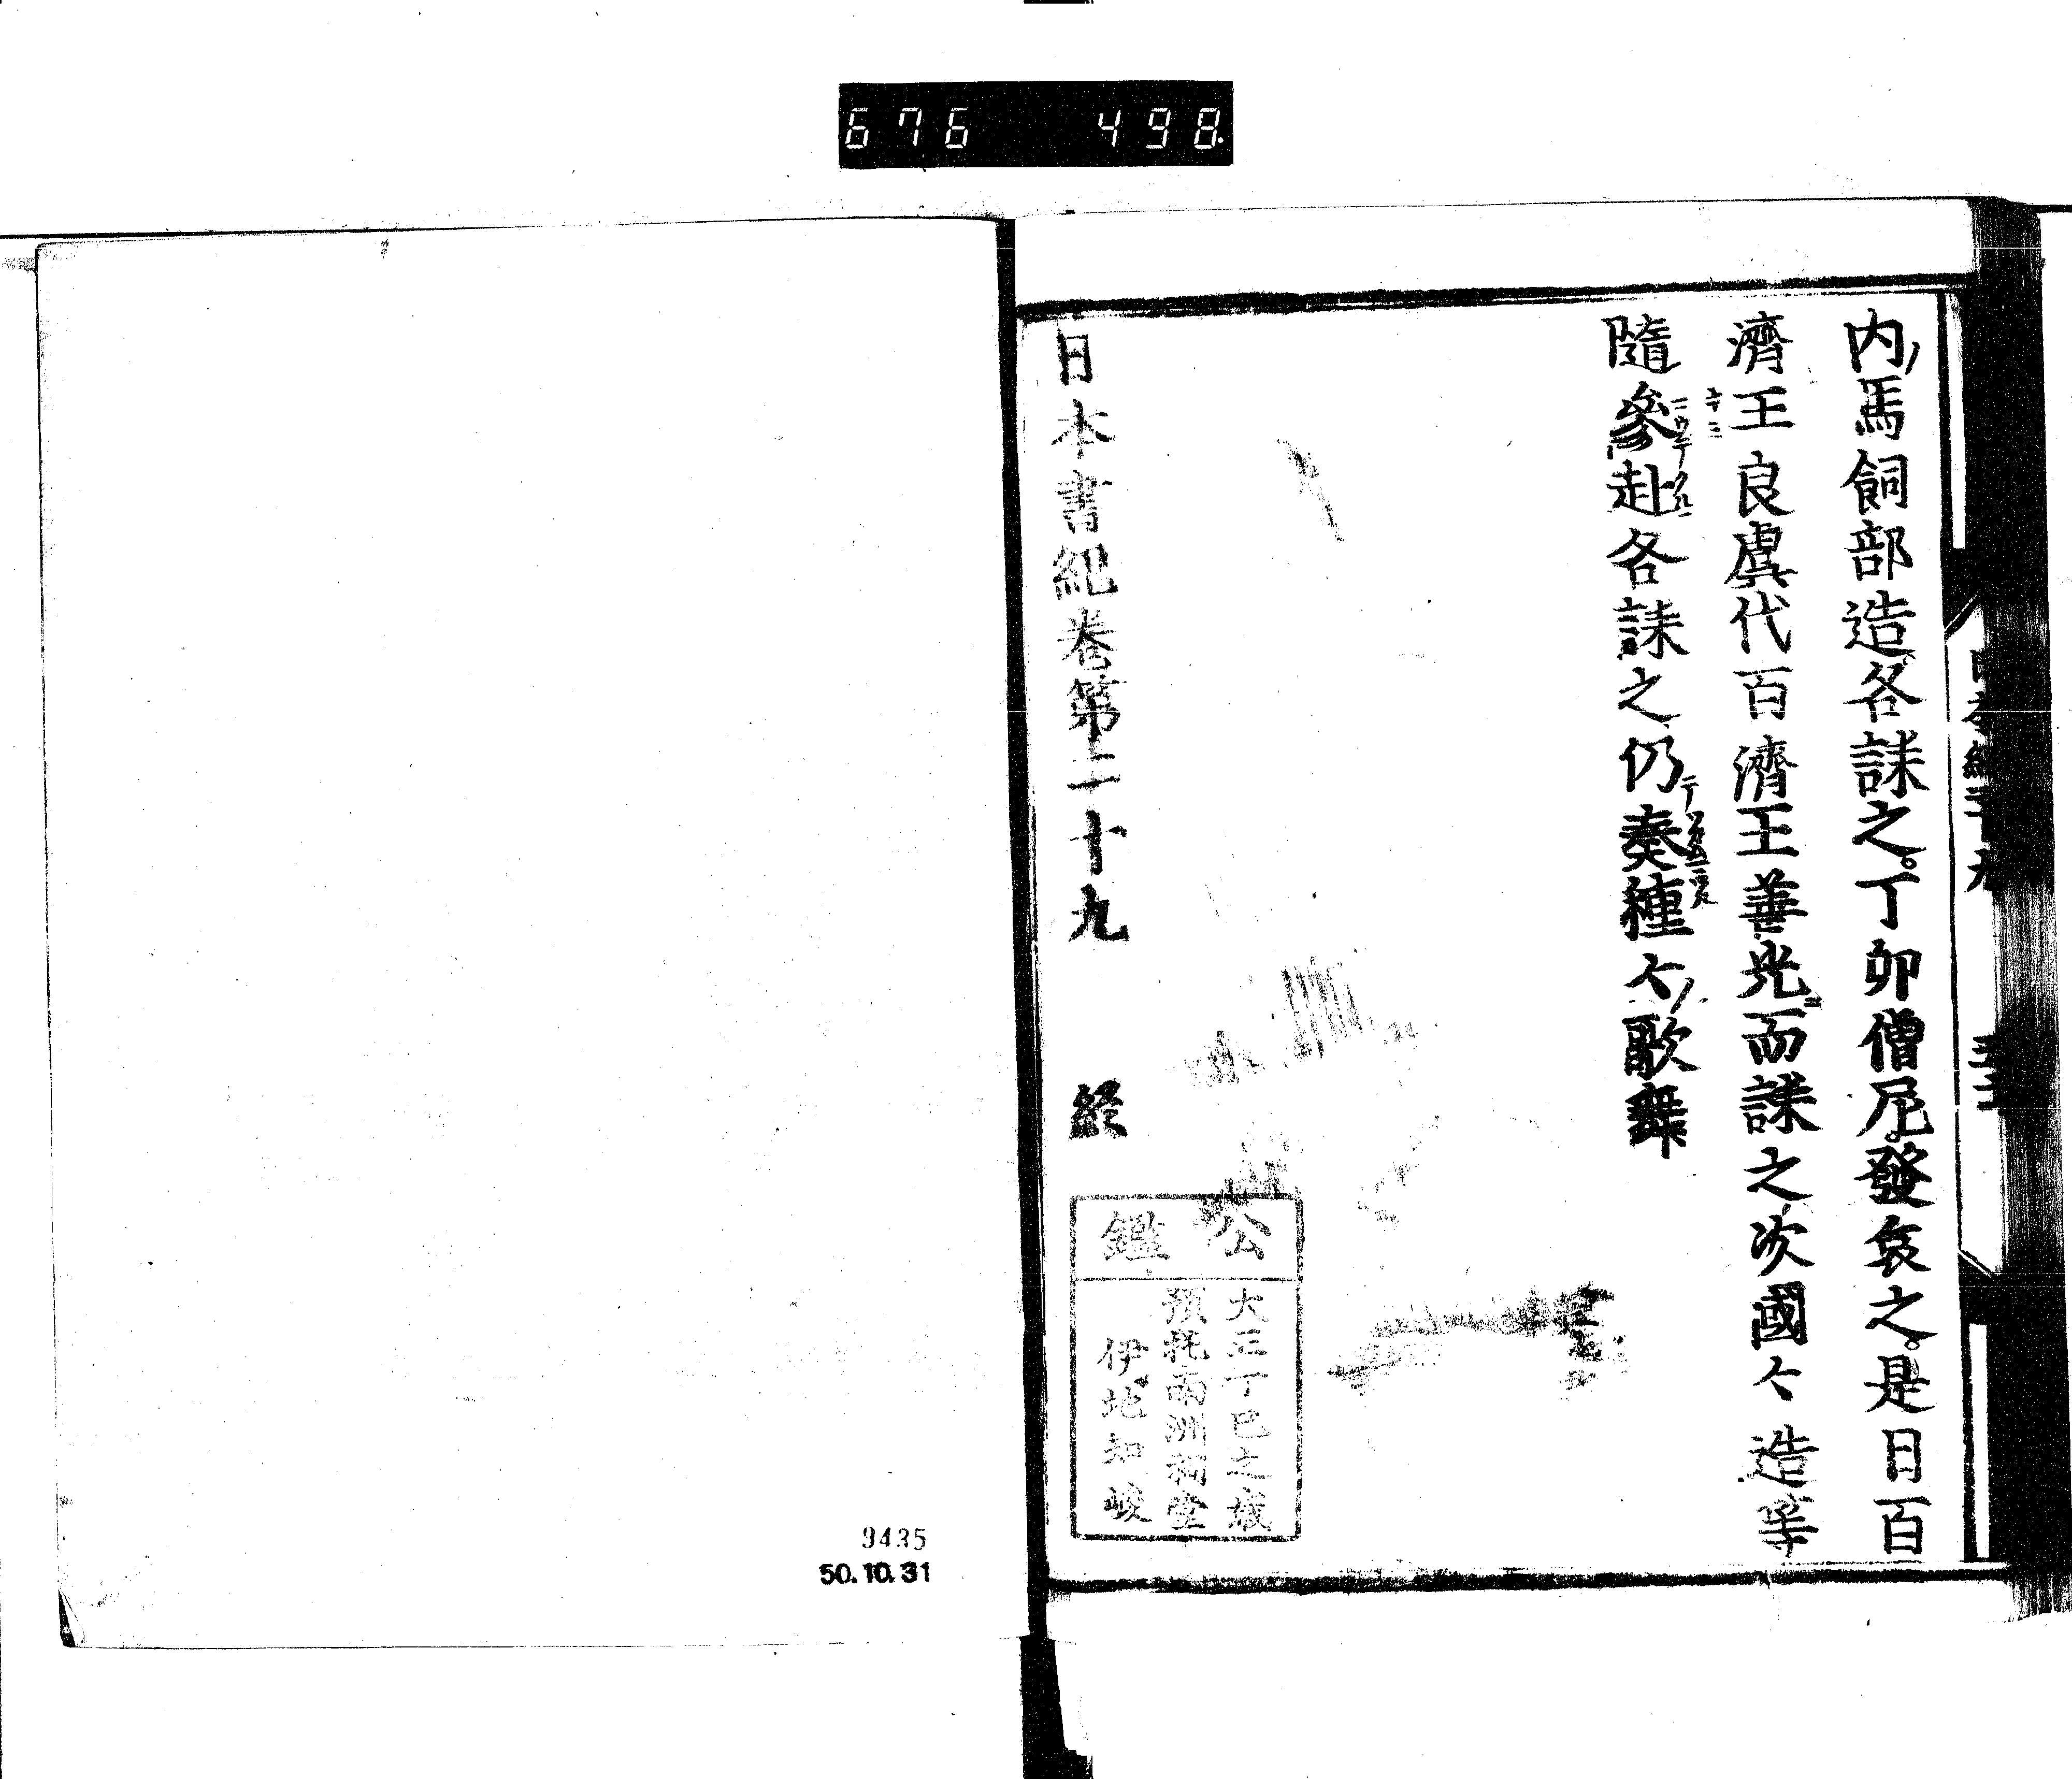 676 498.
内馬飼部造各誄之。丁卯僧尼發哀之。是日百
濟王良虞代百濟王善光而誄之次國々造等
隨參赴各誄之仍奏種々歌儛
日本書紀卷第二十九 終
公鑑
大正丁巳之歳
預托兩洲祠堂
伊地知峻
9435
50.10.31